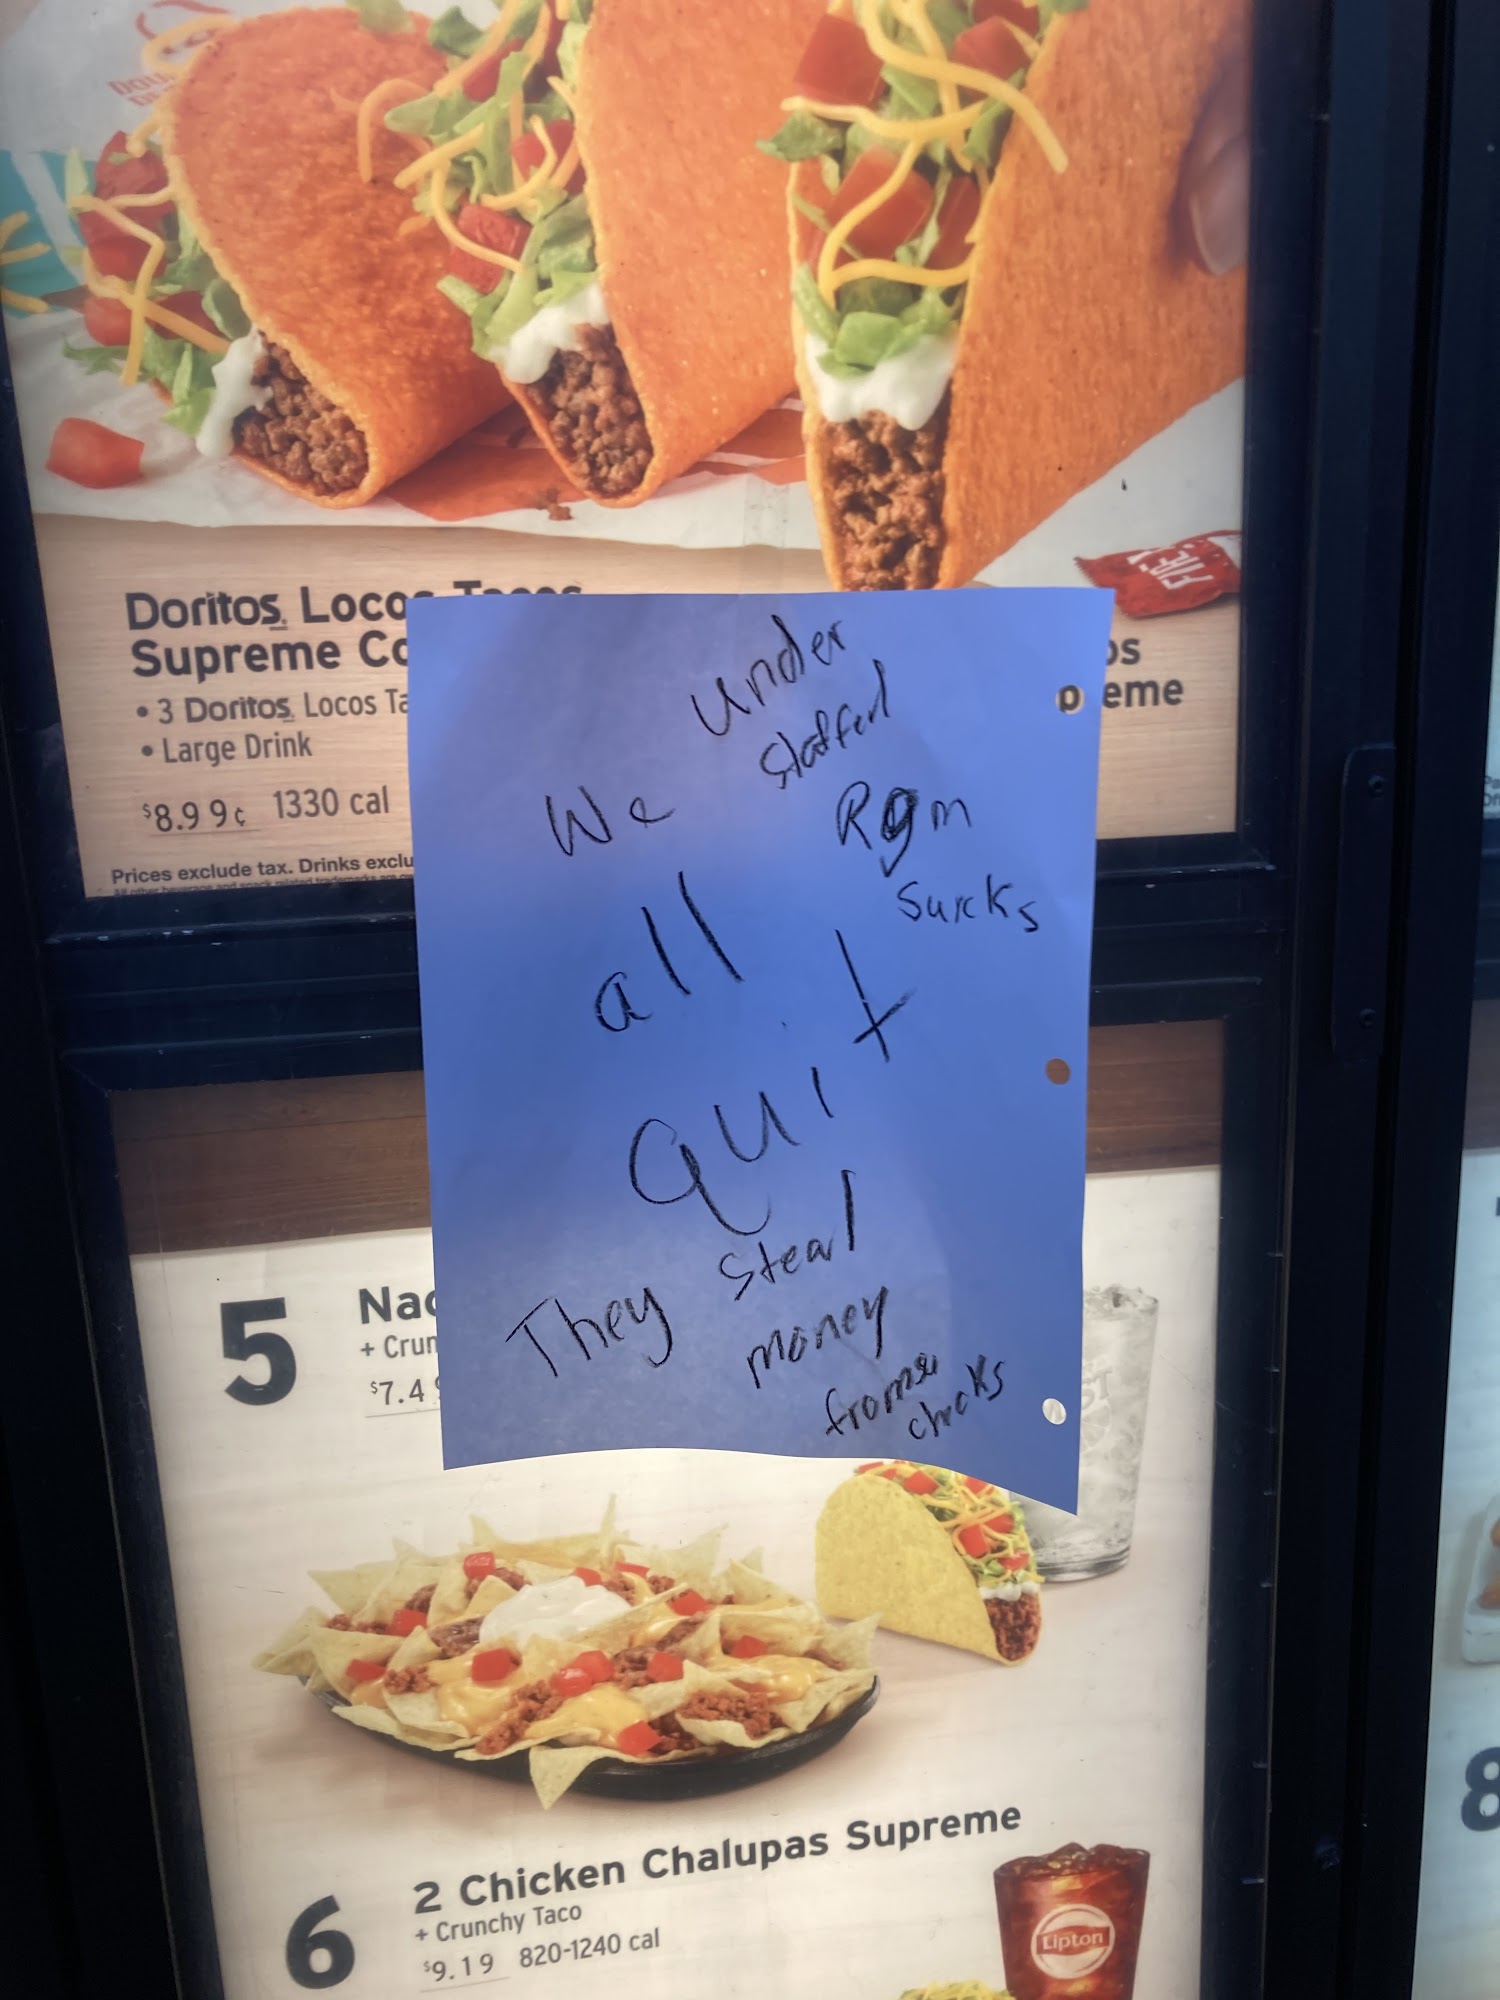 Doritos Locos Tacos
Supreme Co
• 3 Doritos Locos Ta
• Large Drink
$8.99¢ 1330 cal
Prices exclude tax. Drinks exclu
os
preme
Under
staffed
We
Rgm
Surcks
all
quit
They steal
money
from
checks
5
Nac
+ Crun
$7.4
6
2 Chicken Chalupas Supreme
+ Crunchy Taco
$9.19 820-1240 cal
Lipton
FIRE
8